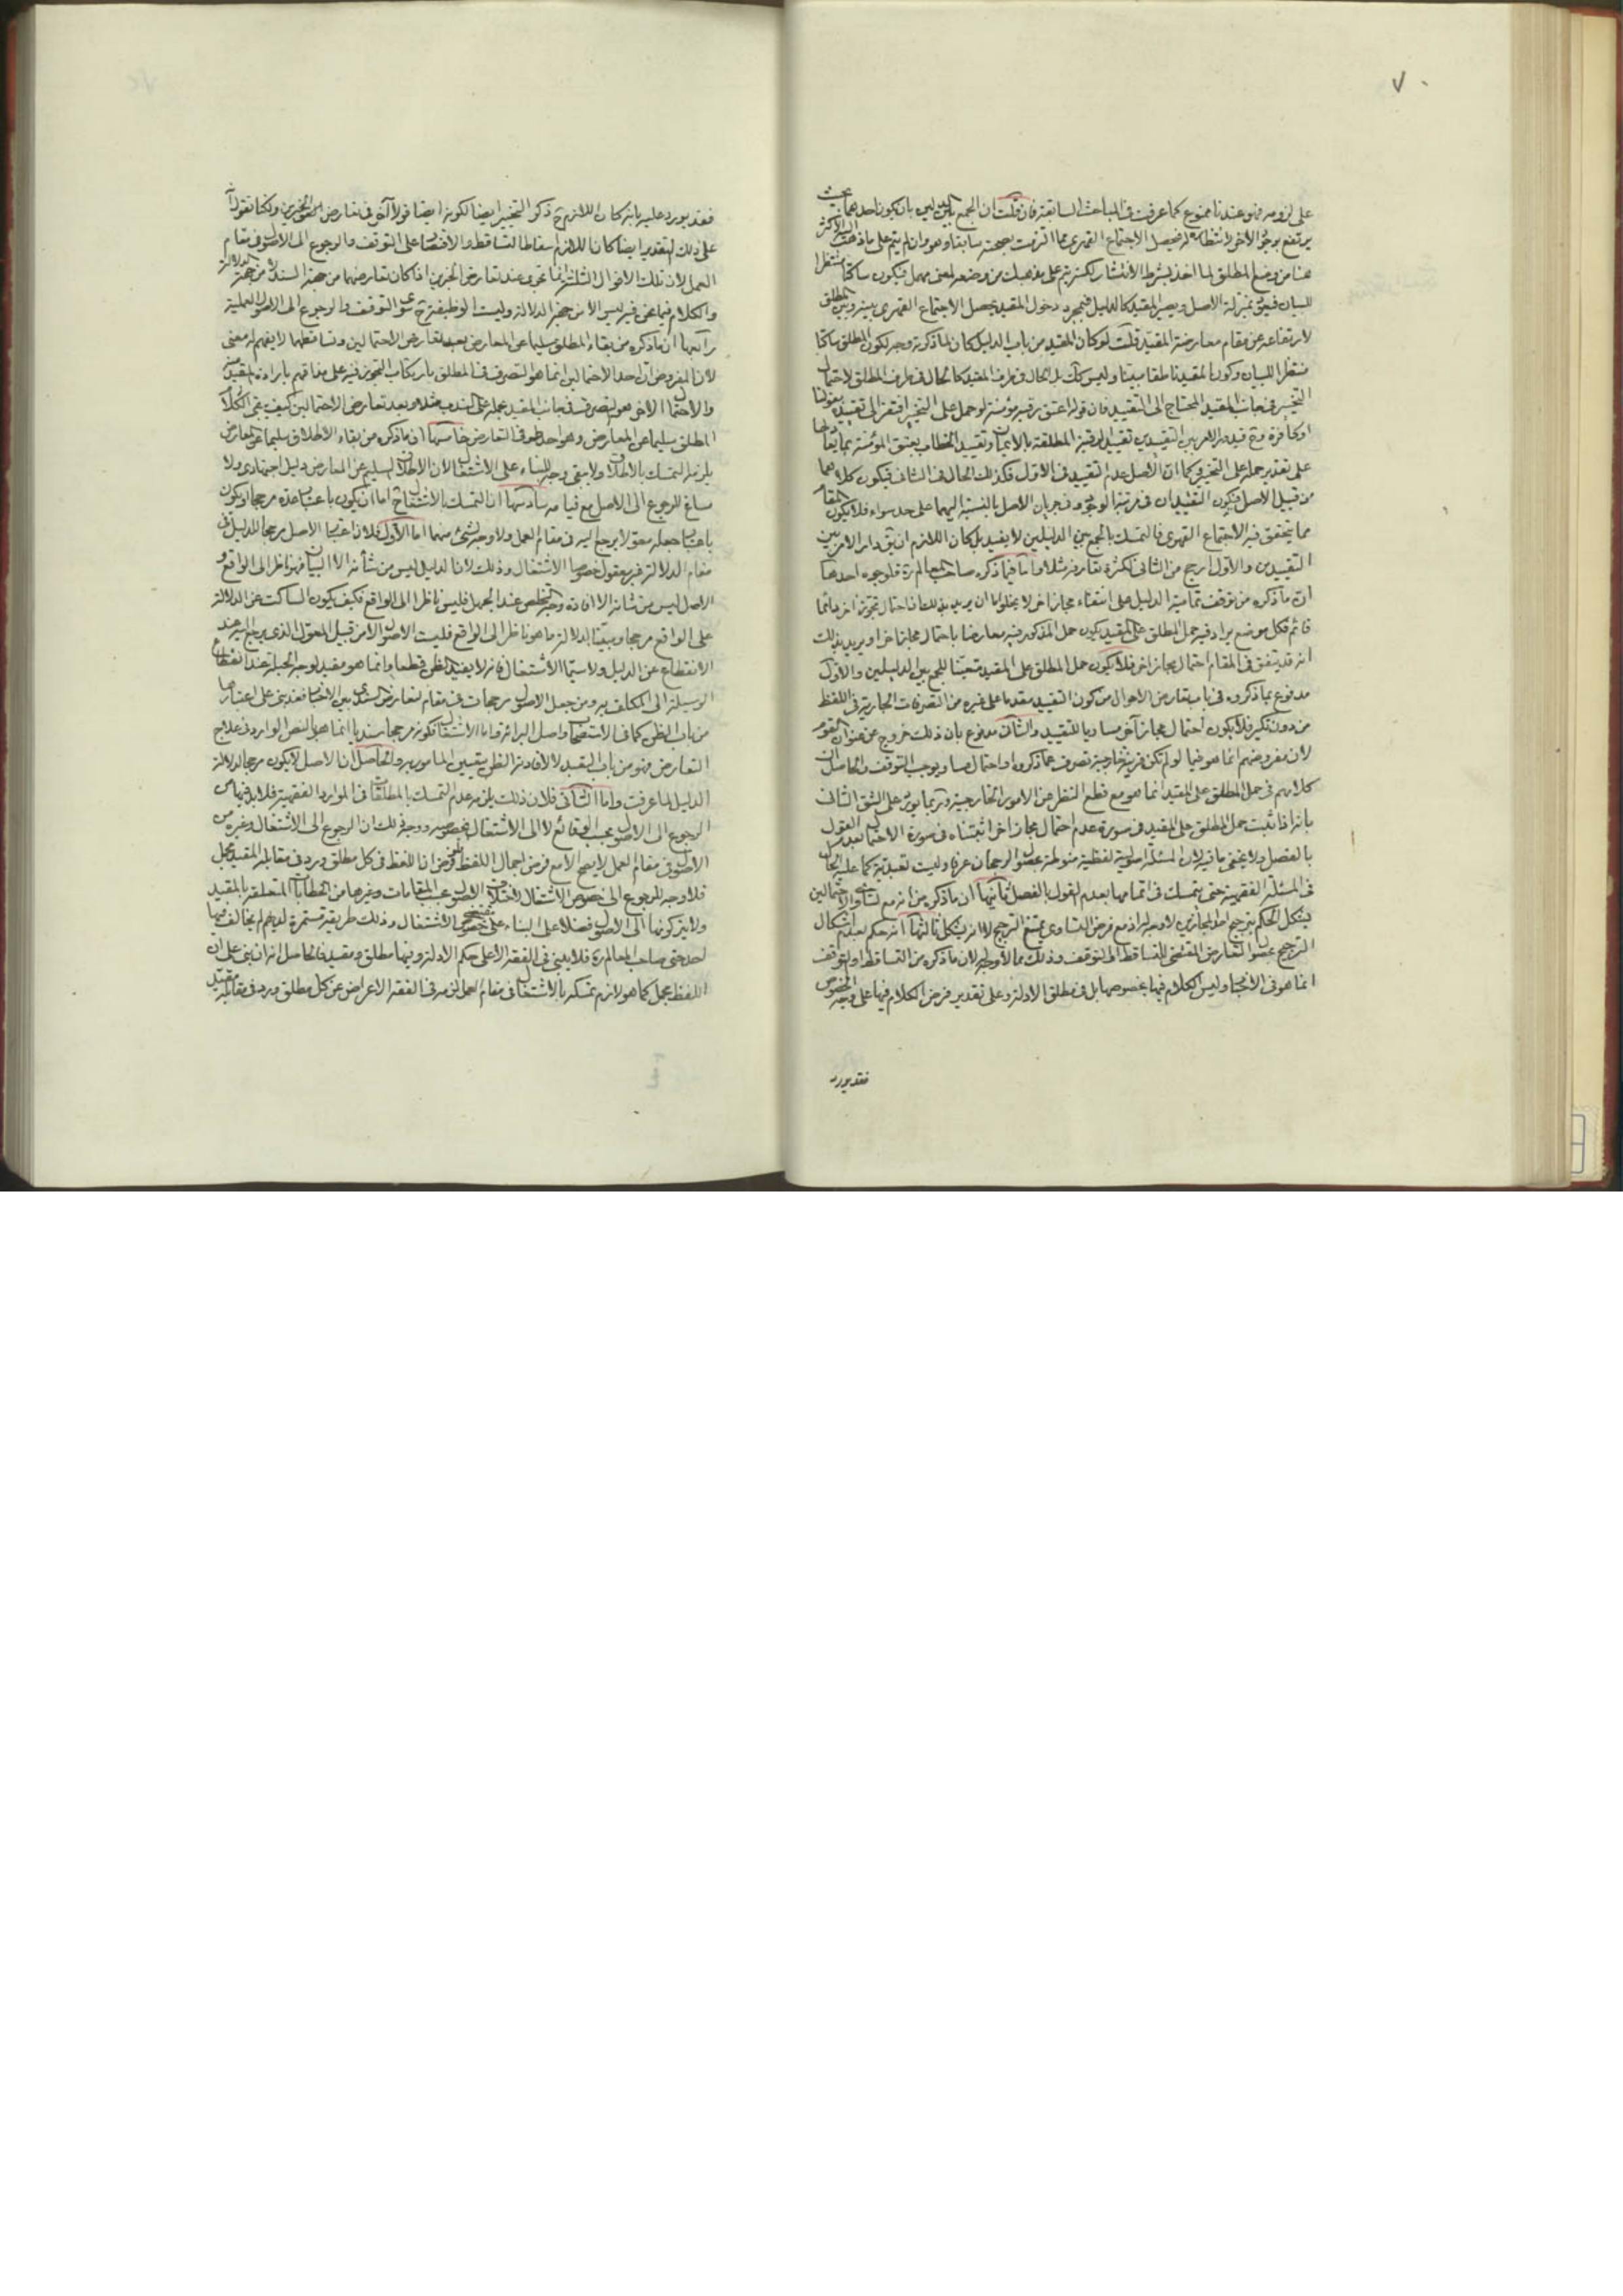 ٧٠
على لزومه فهو عندنا ممنوع كما عرفت في المباحث السابقة فان قلت ان الجمع بين الدليلين بان يكون احدهما بحيث
يرتفع بوجود الآخر لانتظاره له فيحصل الاجتماع القهري مما التزمت بصحته سابقا وهو وان لم يتم على ما ذهب اليه الاكثر
هنا من وضع المطلق لما اخذ بشرط الانتشار لكنه يتم على مذهبك من وضعه لمعنى مهمل فيكون ساكتا منتظرا
للبيان فيبقى بمنزلة الاصل ويصير المقيد كالدليل فبمجرد دخول المقيد يحصل الاجتماع القهري بينه وبين المطلق
لارتفاعه عن مقام معارضة المقيد قلت لو كان المقيد من باب الدليل كان لما ذكرته وجه لكون المطلق ساكتا
منتظرا للبيان وكون المقيد ناطقا مبينا وليس كك بل الحال في طرف المقيد كالحال في طرف المطلق لاحتمال
التخيير في جانب المقيد المحتاج الى التقييد فان قوله اعتق رقبة مؤمنة لو حمل على التخيير افتقر الى تقييده بقولنا
او كافرة وح فيدور الامر بين التقييدين تقييد الرقبة المطلقة بالايمان وتقييد الخطاب بعتق المؤمنة بما يعادلها
على تقدير حمله على التخيير وكما ان الاصل عدم التقييد في الاول فكذلك الحال في الثاني فيكون كلاهما
من قبيل الاصل فيكون التقييدان في مرتبة الوجود وفي جريان الاصل بالنسبة اليهما على حد سواء فلا يكون المقام
مما يتحقق فيه الاجتماع القهري فالتمسك بالجمع بين الدليلين لا يفيد بل كان اللازم ان يق دار الامر بين
التقييدين والاول ارجح من الثاني لكثرة تعارفه مثلا واما فيما ذكره صاحب المعالم ره فلوجوه احدها
ان ما ذكره من توقف تمامية الدليل على انتفاء مجاز اخر لا يخلو اما ان يريد بذلك ان احتمال تجوز اخر دائما
قائم فكل موضع يراد فيه حمل المطلق على المقيد يكون حمل المذكور فيه معارضا باحتمال مجاز اخر او يريد بذلك
انه قد يتفق في المقام احتمال مجاز اخر فلا يكون حمل المطلق على المقيد متعينا للجمع بين الدليلين والاول
مدفوع بما ذكروه في باب تعارض الاحوال من كون التقييد مقدما على غيره من التصرفات الجارية في اللفظ
من دون نكير فلا يكون احتمال مجاز آخر مساويا للتقييد والثاني مدفوع بان ذلك خروج عن عنوان القوم
لان مفروضهم انما هو فيما لو لم تكن قرينة خارجية تصرف عما ذكروه او احتمال مساو يوجب التوقف والحاصل ان
كلامهم في حمل المطلق على المقيد انما هو مع قطع النظر عن الامور الخارجية وربما يورد على الشق الثاني
بانه اذا ثبت حمل المطلق على المقيد في صورة عدم احتمال مجاز اخر اثبتناه في صورة الاحتمال بعدم القول
بالفصل ولا يخفى ما فيه لان المسئلة اصولية لفظية منوطة بحصول الرجحان عرفا وليست تعبدية كما عليه الحال
في المسئلة الفقهية حتى يتمسك في اتمامها بعدم القول بالفصل ثانيها ان ما ذكره من انه مع تساوي الاحتمالين
يشكل الحكم بترجيح احد المجازين لا وجه له اذ مع فرض التساوي يمتنع الترجيح لا انه يشكل ثالثها انه حكم بعد اشكال
الترجيح بحصول التعارض المقتضي للتساقط او التوقف وذلك مما لا وجه له لان ما ذكره من التساقط او التوقف
انما هو في الاخبار وليس الكلام فيها بخصوصها بل في مطلق الادلة وعلى تقدير فرض الكلام فيها على وجه الخصوص
فقد يورد
فقد يورد عليه بانه كان اللازم ح ذكر التخيير ايضا لكونه ايضا قولا آخر في تعارض الخبرين ولكنا نقول
على ذلك التقدير ايضا كان اللازم اسقاط التساقط والاقتصار على التوقف والرجوع الى الاصول في مقام
العمل لان تلك الاقوال الثلثة انما تجري عند تعارض الخبرين اذا كان تعارضهما من جهة السند لا من جهة الدلالة
والكلام فيما نحن فيه ليس الا من جهة الدلالة وليست الوظيفة ح سوى التوقف والرجوع الى الاصول العملية
رابعها ان ما ذكره من بقاء المطلق سليما عن المعارض بعد تعارض الاحتمالين وتساقطهما لا يفهم له معنى
لان المفروض ان احد الاحتمالين انما هو التصرف في المطلق بارتكاب التجوز فيه على مذاقهم بارادة المقيد منه
والاحتمال الآخر هو التصرف في جانب المقيد بحمله على الندب مثلا وبعد تعارض الاحتمالين كيف يبقى
المطلق سليما عن المعارض وهو احد طرفي التعارض خامسها ان ما ذكره من بقاء الاطلاق سليما عن المعارض
يلزمه التمسك بالاطلاق ولا يبقى وجه للبناء على الاشتغال لان الاطلاق السليم عن المعارض دليل اجتهادي ولا
مساغ للرجوع الى الاصل مع قيامه سادسها ان التمسك بالاشتغال ح اما ان يكون باعتبار عده مرجحا او يكون
باعتبار جعله معولا يرجع اليه في مقام العمل ولا وجه لشئ منهما اما الاول فلان اعتبار الاصل مرجحا للدليل في
مقام الدلالة غير معقول خصوصا الاشتغال وذلك لان الدليل ليس من شأنه الا البيان فهو ناظر الى الواقع و
الاصل ليس من شانه الا افادة وجه التخلص عند الجهل فليس ناظرا الى الواقع فكيف يكون الساكت عن الدلالة
على الواقع مرجحا ومبينا لدلالة ما هو ناظر الى الواقع فليست الاصول الا من قبيل المعول الذي يرجع اليه عند
الانقطاع عن الدليل ولا سيما الاشتغال فانه لا يفيد الظن قطعا وانما هو مفيد لوجه الحيلة عند انقطاع
الوسيلة الى المكلف به ومن جعل الاصول مرجحات في مقام تعارض السندي بين الاخبار فقد بنى على اعتبارها
من باب الظن كما في الاستصحاب واصل البرائة واما الاشتغال فكونه مرجحا سنديا انما هو بالنص الوارد في علاج
التعارض فهو من باب التعبد لا لافادة الظن بتعيين المامور به والحاصل ان الاصل لا يكون مرجحا لدلالة
الدليل لما عرفت واما الثاني فلان ذلك يلزمه عدم التمسك بالمطلقات في الموارد الفقهية فلا بد فيها من
الرجوع الى الاصول بحسب الوقائع لا الى الاشتغال بخصوصه ووجه ذلك ان الرجوع الى الاشتغال وغيره من
الاصول في مقام العمل لا يصح الا مع فرض اجمال اللفظ فاذا فرض ان اللفظ في كل مطلق ورد في مقابلة المقيد مجمل
فلا وجه للرجوع الى خصوص الاشتغال لاختلاف الاصول بحسب المقامات وغيرها من الخطابات المتعلقة بالمقيد
ولا يتركونها الى الاصول فضلا على البناء على خصوص الاشتغال وذلك طريقة مستمرة لديهم لم يخالف فيها
احد حتى صاحب المعالم ره فلا يبتني في الفقه الا على حكم الادلة وفيها مطلق ومقيد فالحاصل انه ان بنى على ان
اللفظ مجمل كما هو لازم تمسكه بالاشتغال في مقام العمل لزمه في الفقه الاعراض عن كل مطلق ورد في مقابله مقيد